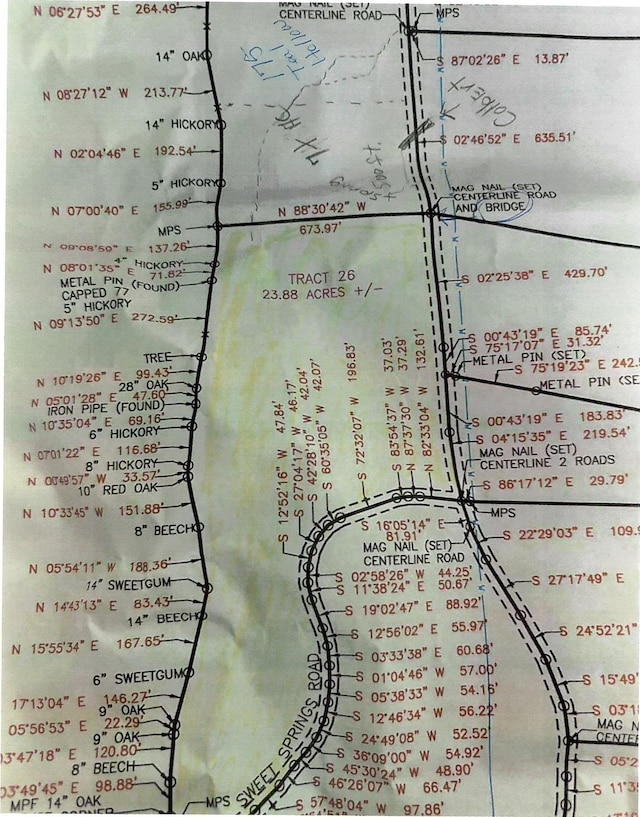 N 06°27'53" E 264.49'
MAG NAIL (SET)
CENTERLINE ROAD
MPS
14" OAK
S 87°02'26" E 13.87'
N 08°27'12" W 213.77'
175
Hollow
Colbert
14" HICKORY
S 02°46'52" E 635.51'
N 02°04'46" E 192.54'
5" HICKORY
MAG NAIL (SET)
CENTERLINE ROAD
AND BRIDGE
N 07°00'40" E 155.99'
N 88°30'42" W
673.97'
MPS
137.26'
4" HICKORY
N 08°01'35" E 71.82'
METAL PIN (FOUND)
CAPPED 77
5" HICKORY
TRACT 26
23.88 ACRES +/-
S 02°25'38" E 429.70'
N 09°13'50" E 272.59'
S 00°43'19" E 85.74'
S 75°17'07" E 31.32'
METAL PIN (SET)
S 75°19'23" E 242.
METAL PIN (SE
TREE
N 10°19'26" E 99.43'
28" OAK
N 05°01'28" E 47.60'
IRON PIPE (FOUND)
N 10°35'04" E 69.16'
6" HICKORY
N 07°01'22" E 116.68'
8" HICKORY
N 00°49'57" W 33.57'
10" RED OAK
N 10°33'45" W 151.88'
S 12°52'16" W 47.84'
S 27°04'17" W 46.17'
S 42°28'10" W 42.04'
S 60°35'05" W 42.07'
S 72°32'07" W 196.83'
S 83°54'37" W 37.03'
N 87°37'30" W 37.29'
N 82°33'04" W 132.61'
S 00°43'19" E 183.83'
S 04°15'35" E 219.54'
MAG NAIL (SET)
CENTERLINE 2 ROADS
S 86°17'12" E 29.79'
MPS
8" BEECH
S 16°05'14" E
81.91'
MAG NAIL (SET)
CENTERLINE ROAD
S 22°29'03" E 109.9
N 05°54'11" W 188.36'
14" SWEETGUM
S 02°58'26" W 44.25'
S 11°38'24" E 50.67'
S 27°17'49" E
N 14°43'13" E 83.43'
14" BEECH
S 19°02'47" E 88.92'
S 12°56'02" E 55.97'
S 24°52'21"
N 15°55'34" E 167.65'
S 03°33'38" E 60.68'
S 01°04'46" W 57.00'
6" SWEETGUM
S 05°38'33" W 54.16'
S 15°49'
17°13'04" E 146.27'
9" OAK
S 12°46'34" W 56.22'
S 03°1
05°56'53" E 22.29'
9" OAK
S 24°49'08" W 52.52'
MAG N
CENTER
03°47'18" E 120.80'
S 36°09'00" W 54.92'
S 05°2
8" BEECH
S 45°30'24" W 48.90'
03°49'45" E 98.88'
S 46°26'07" W 66.47'
S 11°3
MPF 14" OAK
MPS
SWEET SPRINGS ROAD
S 57°48'04" W 97.86'